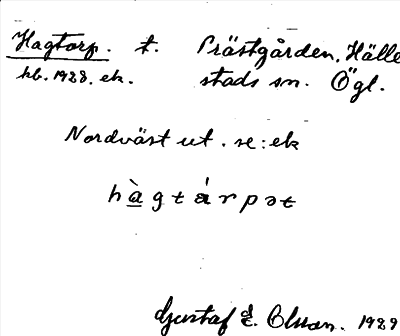 Hagtorp. t. Prästgården, Hälle
hb. 1928. ek. stads sn. Ögl.
Nordväst ut. se: ek
hàgtárpət
Gustaf E. Olsson. 1929